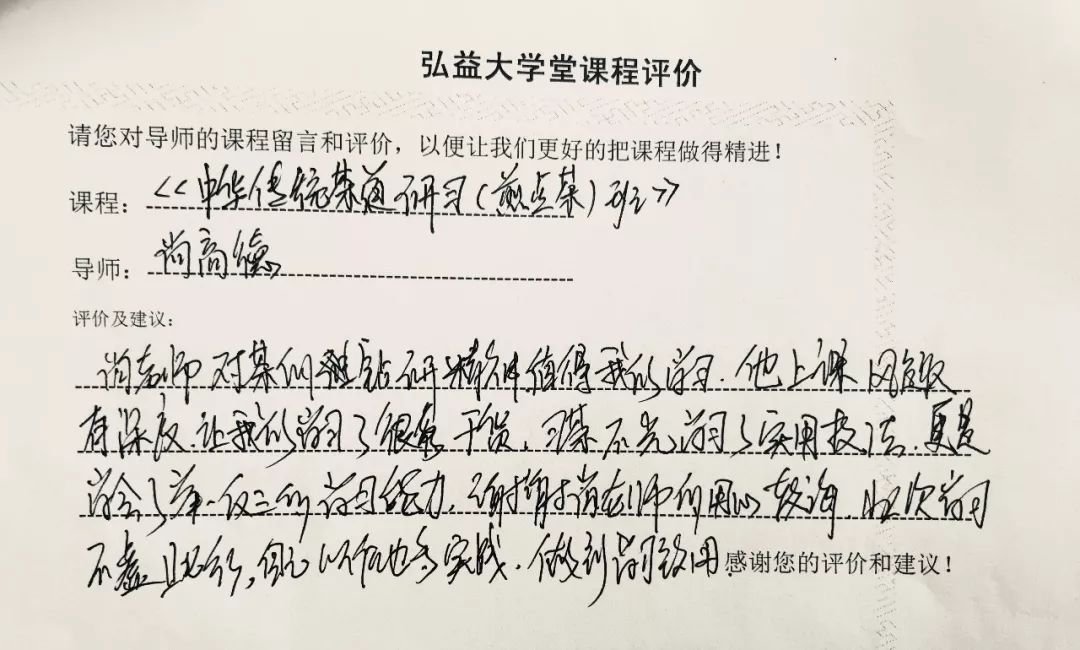 弘益大学堂课程评价
请您对导师的课程留言和评价，以便让我们更好的把课程做得精进！
课程：《中华传统茶道研习（煎点茶）班》
导师：尚高德
评价及建议：
尚老师对茶的钻研精神值得我们学习．他上课风趣
有深度．让我们学习了很多干货，习茶不光学习了实用技法．更是
学会了举一反三的学习能力．谢谢尚老师的用心教海．此次学习
不虚此行，以后也多实践．做到学习致用
感谢您的评价和建议！